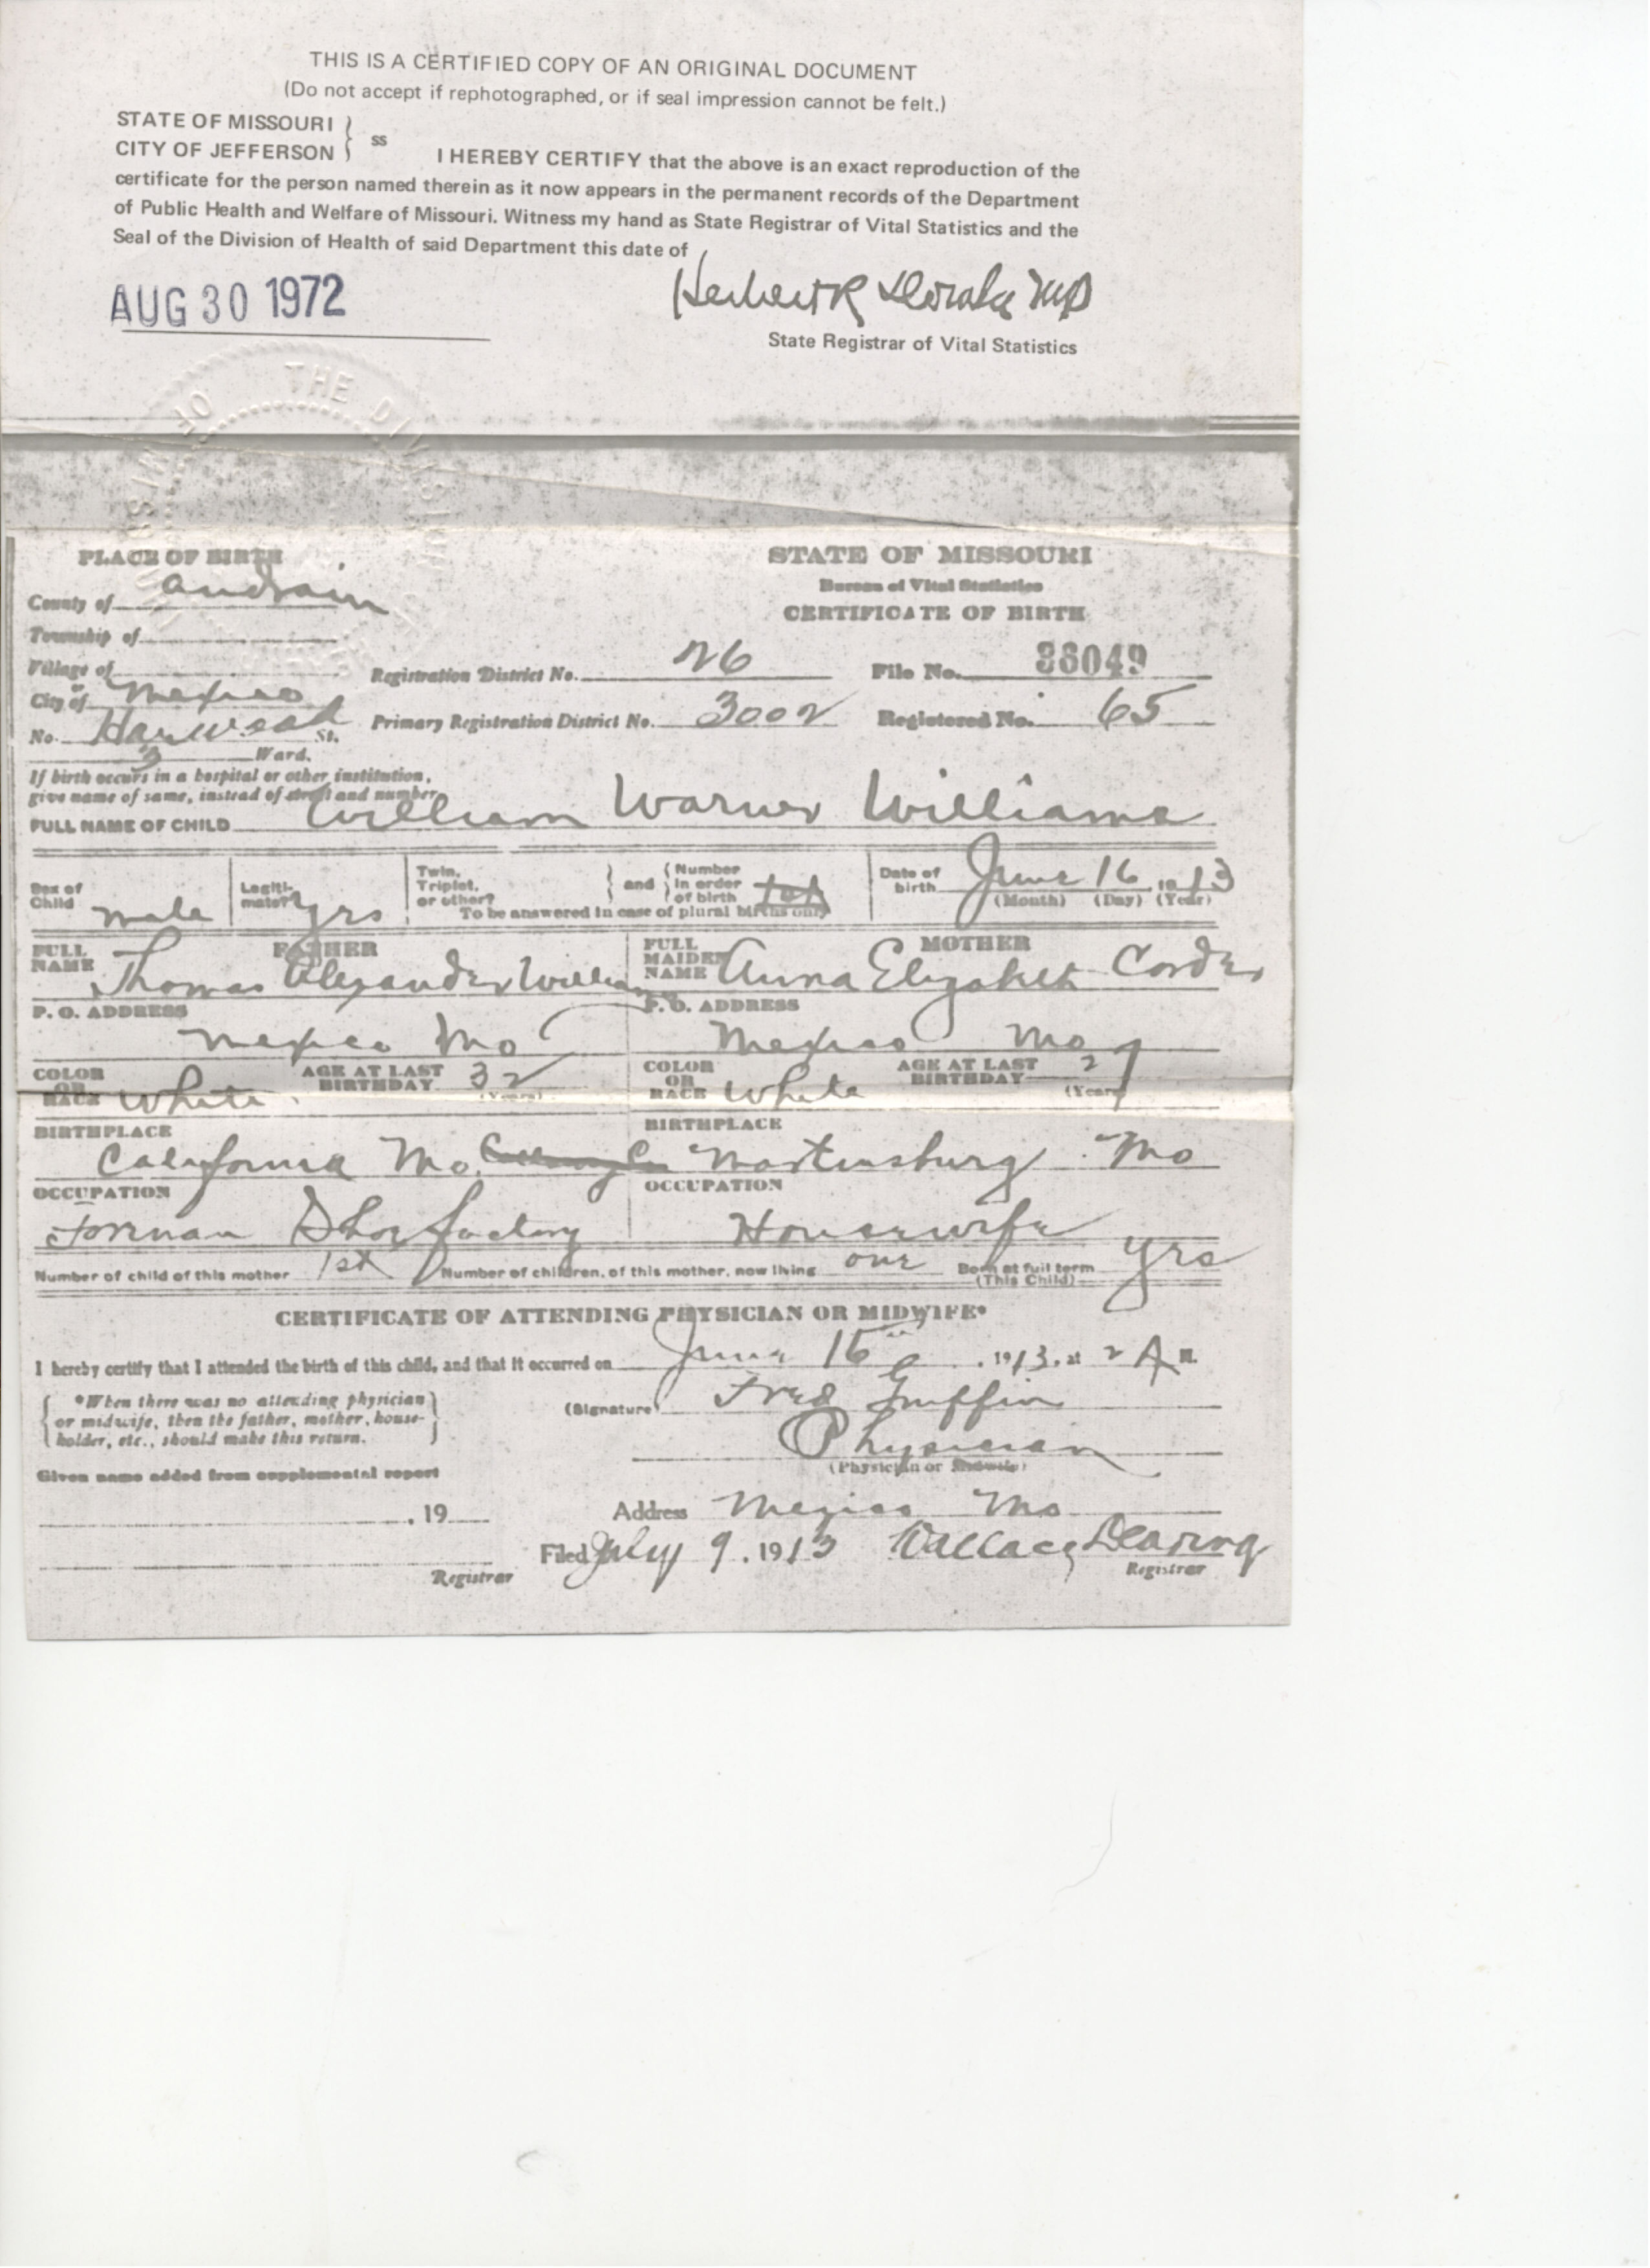 THIS IS A CERTIFIED COPY OF AN ORIGINAL DOCUMENT
(Do not accept if rephotographed, or if seal impression cannot be felt.)
STATE OF MISSOURI
CITY OF JEFFERSON } ss
I HEREBY CERTIFY that the above is an exact reproduction of the
certificate for the person named therein as it now appears in the permanent records of the Department
of Public Health and Welfare of Missouri. Witness my hand as State Registrar of Vital Statistics and the
Seal of the Division of Health of said Department this date of
AUG 30 1972
State Registrar of Vital Statistics
THE DIVISION OF
PLACE OF BIRTH
STATE OF MISSOURI
Bureau of Vital Statistics
CERTIFICATE OF BIRTH
County of Audrain
Township of
Village of
or
City of Mexico
Registration District No. 26
File No. 36049
No. St.
Primary Registration District No. 3002
Registered No. 65
3 Ward.
If birth occurs in a hospital or other institution,
give name of same, instead of street and number
FULL NAME OF CHILD William Warner Williams
Sex of Child male
Legitimate? yrs
Twin, Triplet, or other?
and
Number in order of birth 1st
To be answered in case of plural births only
Date of birth June 16 1913
(Month) (Day) (Year)
FATHER
FULL NAME Thomas Alexander Williams
MOTHER
FULL MAIDEN NAME Anna Elizabeth Corder
P. O. ADDRESS
Mexico Mo
P. O. ADDRESS
Mexico Mo
COLOR OR RACE White
AGE AT LAST BIRTHDAY 32
(Years)
COLOR OR RACE White
AGE AT LAST BIRTHDAY 27
(Years)
BIRTHPLACE
California Mo.
BIRTHPLACE
Martinsburg Mo
OCCUPATION
Forman Shoe factory
OCCUPATION
Housewife
Number of child of this mother 1st
Number of children, of this mother, now living one
Born at full term (This Child) yrs
CERTIFICATE OF ATTENDING PHYSICIAN OR MIDWIFE*
I hereby certify that I attended the birth of this child, and that it occurred on June 16th, 1913, at 2 A M.
*When there was no attending physician
or midwife, then the father, mother, house-
holder, etc., should make this return.
(Signature) Fred Griffin
Physician
(Physician or Midwife)
Given name added from supplemental report
, 19
Registrar
Address Mexico Mo
Filed July 9, 1913 Wallace Dearing
Registrar